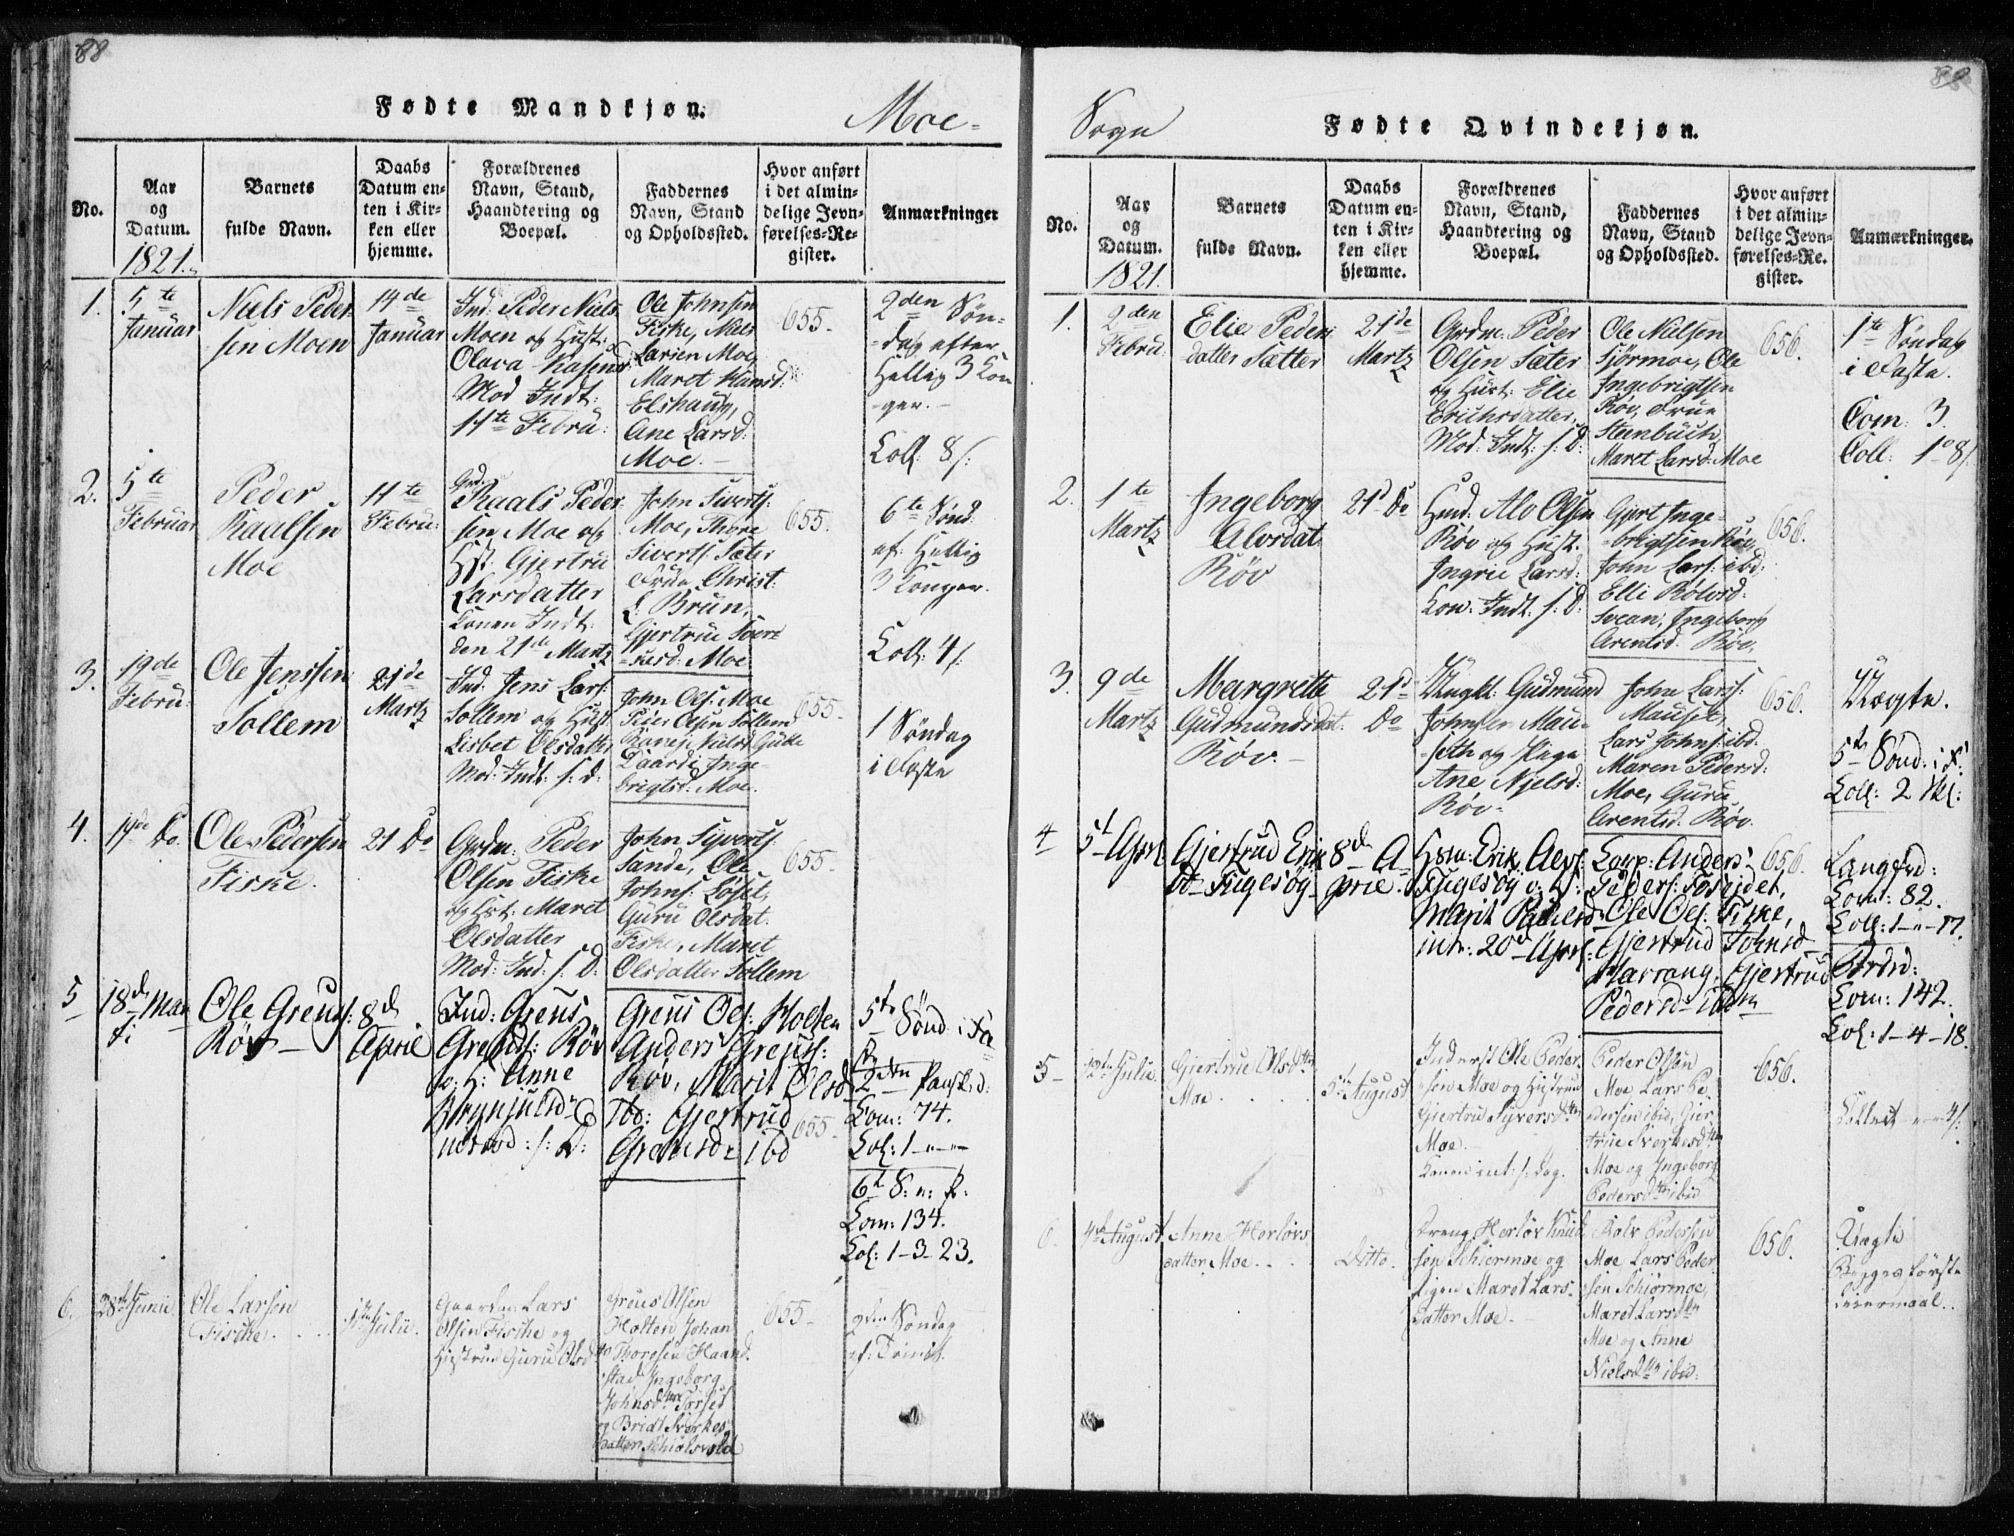 88
Fødte Mandkjøn.
Moe-
No.
Aar
og
Datum.
1821.
Barnets
fulde Navn.
Daabs
Datum en-
ten i Kir-
ken eller
hjemme.
Forældrenes
Navn, Stand,
Haandtering og
Boepæl.
Faddernes
Navn, Stand
og Opholdssted.
Hvor anført
i det almin-
delige Jevn-
førelses-Re-
gister.
Anmærkninger
1.
5te
Januar
Niels Peder
sen Moen
14de
Januar
Ind. Peder Niels
Moen og Hust:
Olava
Mod Indt:
11te Febru:
Ole Johnsen
Fiske, Niels
Larsen Moe,
Maret Hansd:
Elshaug,
Ane Larsd:
Moe.
655.
2den Søn-
dag efter
Hellig 3 Kon
ger.
Coll. 8 s:
2.
5te
Februar
Peder
Raalsen
Moe
11te
Febru:
Raals Peder
sen Moe og
Hst: Gjertru
Larsdatter
Konen Indt:
den 21de Martz
John Siverts:
Moe, Thore
Siverts: Sæter
Frue Christ:
L: Brun,
Gjertrue Siver
Moe
655.
6te Sønd:
ef: Hellig
3 Konger.
Coll: 4 s:
3.
19de
Febru:
Ole Jenssen
Sollem
21de
Martz
Ind. Jens Lars:
Sollem og Hust
Lisbet Olsdatter
Mod: Indt: s: d:
John Ols: Moe
Peder Olsen Sollem
Inge-
brigtsd: Moe.
655.
1 Søndag
i Faste
4.
19de Do
Ole Pedersen
Fiske.
21 Do
Grdm: Peder
Olsen Fiske
og Hst: Maret
Olsdatter
Mod: Ind: s: D:
John Syverts:
Sande, Ole
Johns: Løset,
Guru Olsdat.
Fiske, Maret
Olsdatter Sollem
655.
5
18d Mar
ti
Ole Greus:
Røv
8d
April
Ind: Greus
Røv
o: H: Anne
Brynjulsd:
Greus Ols: Holten
Anders Greus:
Røv, Marit Olsd:
Ibd: Gjertrud
Greusd: ibd
655.
5te Sønd: i Fa
2den Paask: d:
Com: 74.
Col: 1 - " -
6t S: e: P:
Com: 134.
Col: 1-3-23.
6.
28de Junii
Ole Larsen
Fiske
Julii.
Gaardm Lars
Olsen Fiske og
Hustrue Guru Olsd
Greus Olsen
Holten Johan
Thoresen Haand
stad Ingeborg
Johnsd
og Bridt Sverkes
datter
655
Søndag
ef: Trinit.
88
Sogn
Fødte Qvindekjøn.
No.
Aar
og
Datum.
1821.
Barnets
fulde Navn.
Daabs
Datum en-
ten i Kir-
ken eller
hjemme.
Forældrenes
Navn, Stand,
Haandtering og
Boepæl.
Faddernes
Navn, Stand
og Opholdssted.
Hvor anført
i det almin-
delige Jevn-
førelses-Re-
gister.
Anmærkninger.
1.
2den
Febru:
Elie Peders
datter Sætter
21de
Martz
Grdm: Peder
Olsen Sæter
og Hust: Elie
Erichsdatter,
Mod: Indt: s: D:
Ole Nielsen
Sjørmoe, Ole
Ingebrigtsen
Røv, Frue
Steenbuch,
Maret Larsd: Moe
656.
1te Søndag
i Faste.
Com: 3.
Coll:
2.
1te
Martz
Ingeborg
Alvsdat.
Røv
21d Do
Hmd. Alv Olsen
Røv og Hust.
Ingrie Larsd:
Kon: Indt: s: D:
Gjert Inge-
brigtsen Røv,
John Lars: ibd,
Elli
Svean, Ingeborg
Arentsd. Røv.
656.
3.
9de
Martz
Margrette
Gudmundsdat.
Røv.
21d
Do
Ungkl: Gudmund
Johnsen Mau-
seth og Pige
Ane Njelsd:
Røv.
John Lars:
Mauset,
Lars Johns: ibd.
Maren Pedersd:
Moe, Guru
Arentsd. Røv.
656.
Uægte.
5te Sønd: i F:
Coll: 2
4
5t April
Gjertrud Erik
dt Fugesøy
8d A
pril
Hsm: Erik
Fugesøy o: H:
Marit Paulsd:
intr: 20d April:
Corp: Anders
Peders: Foseidet,
Ole Ols: Fiske,
Gjertrud Johnsd
Harrang, Gjertrud
Pedersd: ibdm
656.
Langfrd:
Com: 82.
Coll: 1-"-17.
Com: 142.
Col: 1-4-18.
5
Julii.
Giertrue Olsdtr
Moe
5te August
Inderst Ole Peder-
sen Moe og Hustrue
Giertrud Syversdtr
Moe
Konen int: s: Dag.
Peder Olsen
Moe Lars Pe-
dersen ibid, Gier
true Sverkesdtr
Moe og Ingeborg
Pedersdtr ibid
656.
Collect 4 s:
6.
4de August
Anne Herlovs
datter Moe
Ditto.
Dreng Herlov Knud
sen Schiermoe og
Pigen Maret Lars-
datter Moe.
Rolv Pedersen
Moe Lars Peder
sen Schiørmoe,
Maret Larsdtr
Moe og Anne
Nielsdtr ibid:
656.
Uægte
Begges første
Leiermaal.